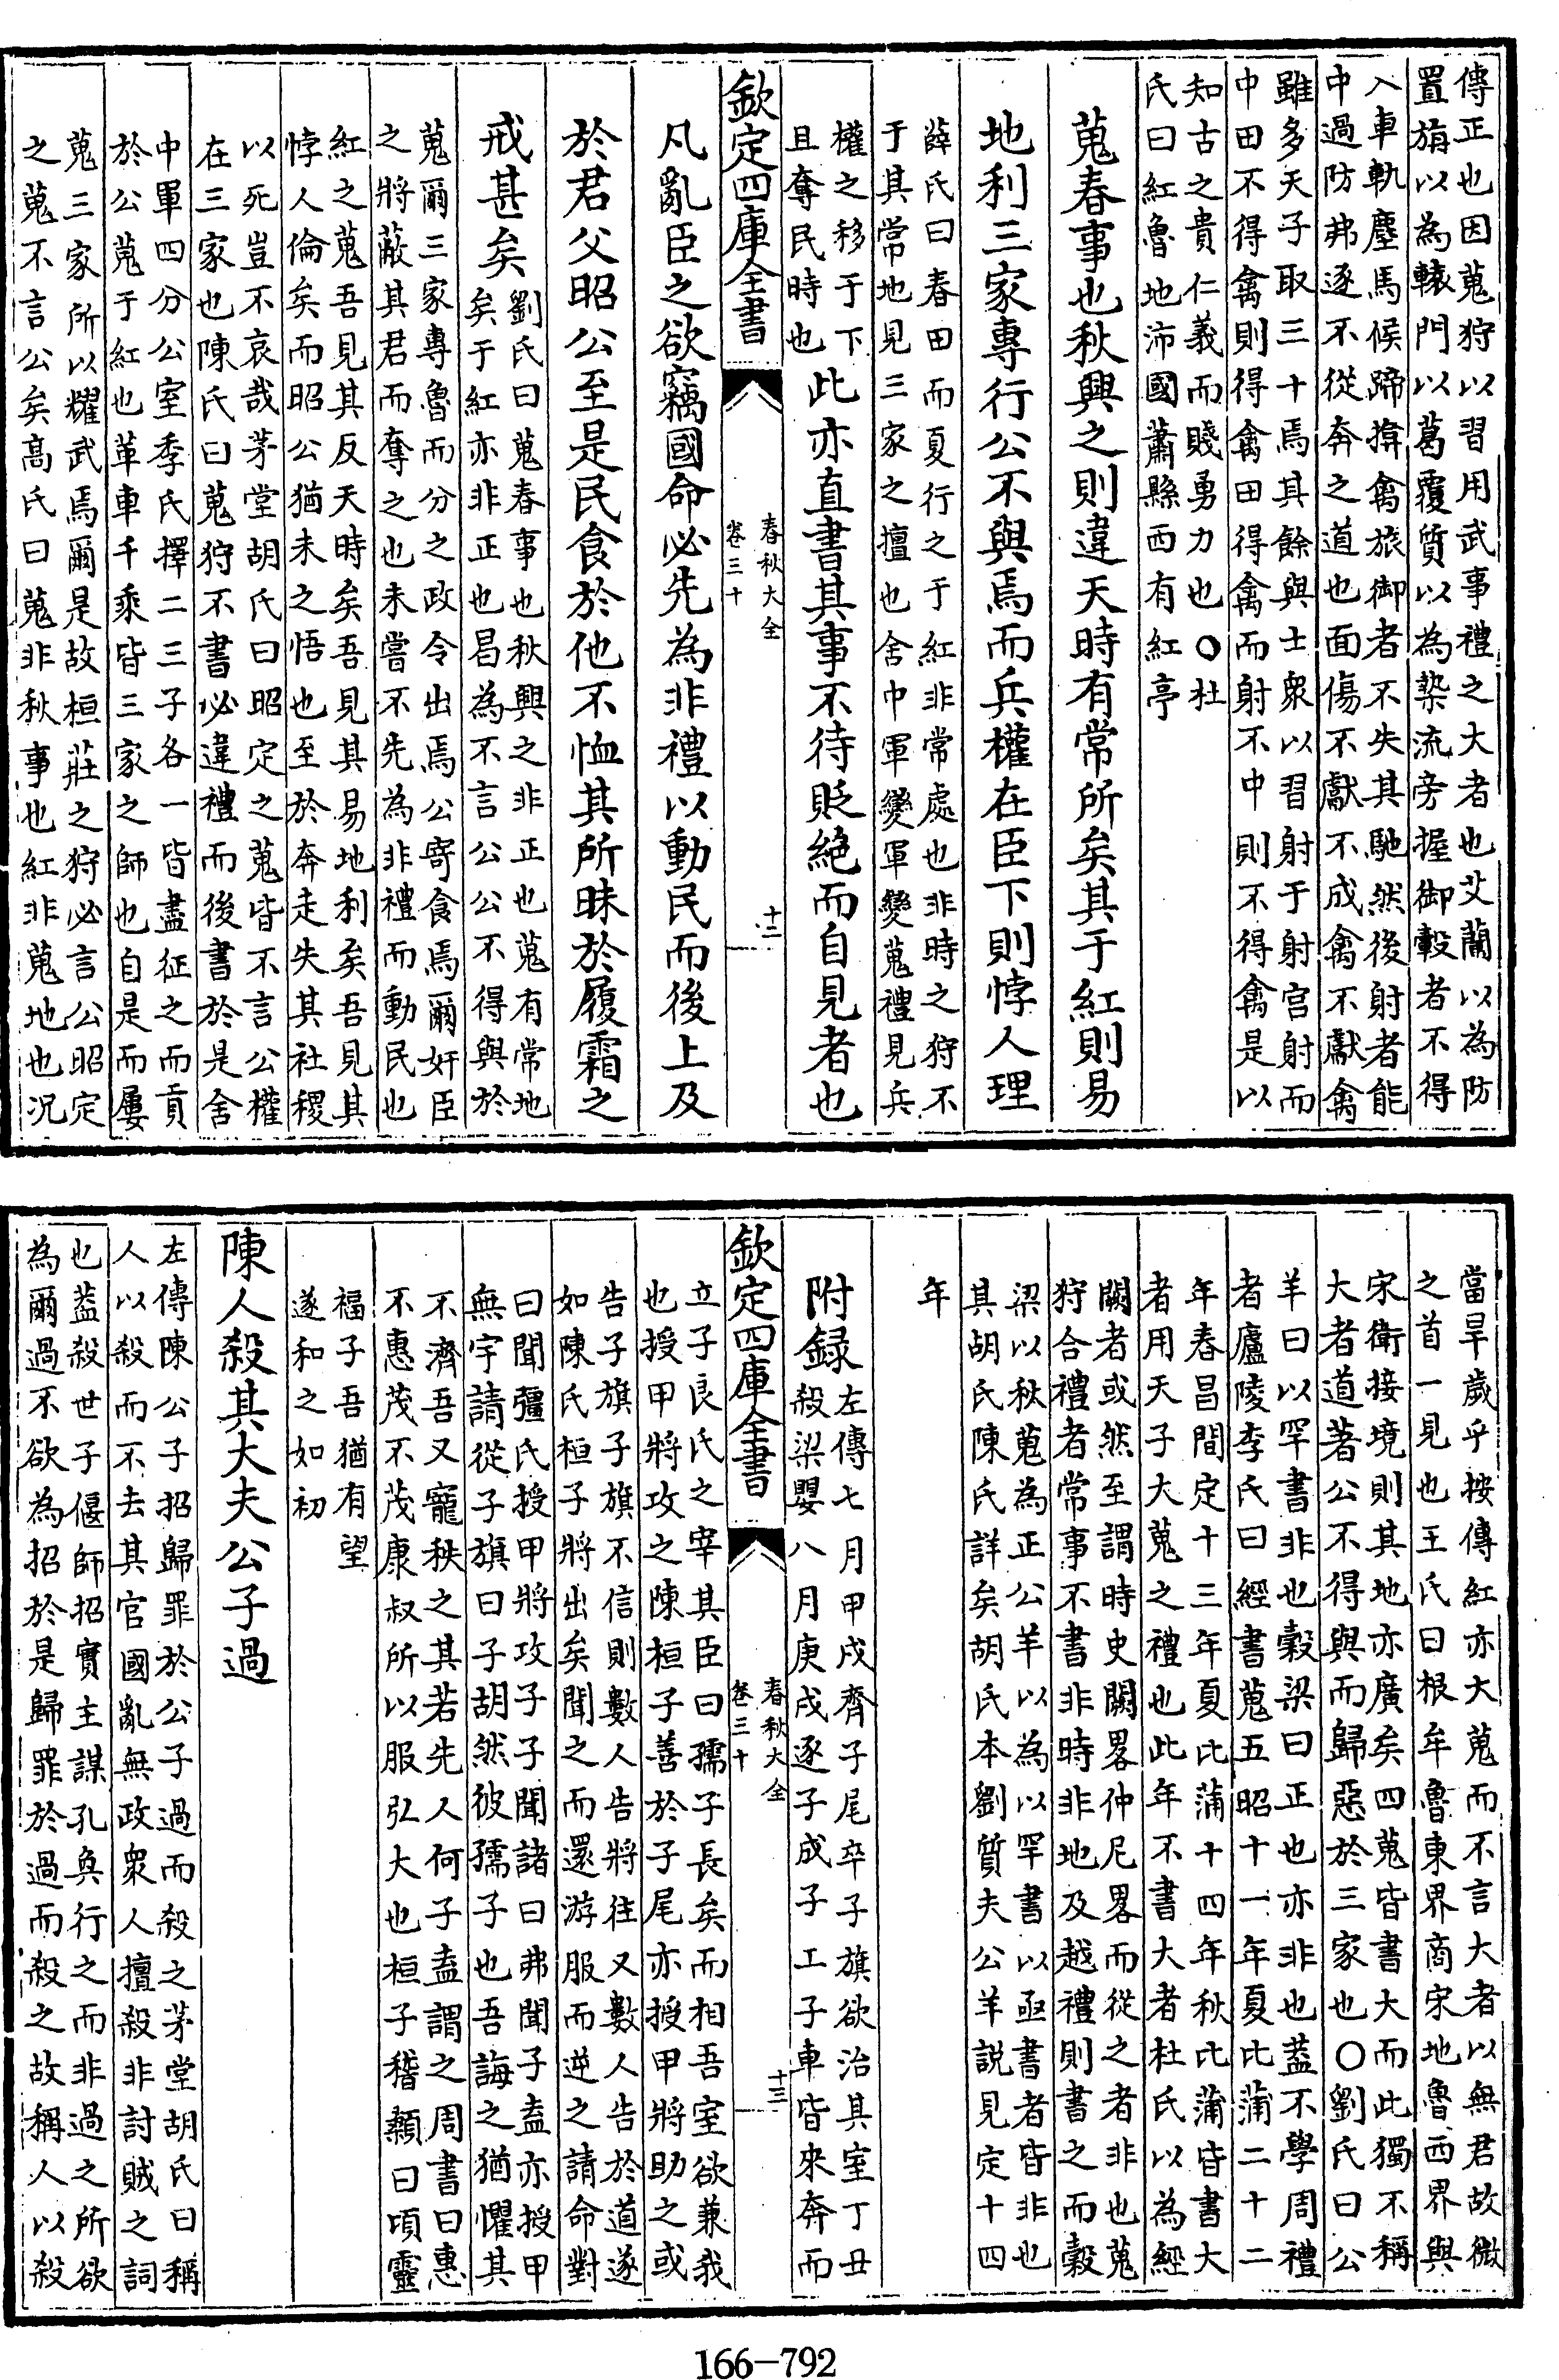 傳正也因蒐狩以習用武事禮之大者也艾蘭以為防
置旃以為轅門以葛覆質以為槷流旁握御轂者不得
入車軌塵馬候蹄揜禽旅御者不失其馳然後射者能
中過防弗逐不從奔之道也面傷不獻不成禽不獻禽
雖多天子取三十焉其餘與士衆以習射于射宫射而
中田不得禽則得禽田得禽而射不中則不得禽是以
知古之貴仁義而賤勇力也○杜
氏曰紅魯地沛國蕭縣西有紅亭
蒐春事也秋興之則違天時有常所矣其于紅則易
地利三家專行公不與焉而兵權在臣下則悖人理
薛氏曰春田而夏行之于紅非常處也非時之狩不
于其常地見三家之擅也舍中軍變軍變蒐禮見兵
權之移于下
且奪民時也
此亦直書其事不待貶絶而自見者也
欽定四庫全書
春秋大全
卷三十
十二
凡亂臣之欲竊國命必先為非禮以動民而後上及
於君父昭公至是民食於他不恤其所昧於履霜之
戒甚矣
劉氏曰蒐春事也秋興之非正也蒐有常地
矣于紅亦非正也曷為不言公公不得與於
蒐爾三家專魯而分之政令出焉公寄食焉爾奸臣
之將蔽其君而奪之也未嘗不先為非禮而動民也
紅之蒐吾見其反天時矣吾見其易地利矣吾見其
悖人倫矣而昭公猶未之悟也至於奔走失其社稷
以死豈不哀哉茅堂胡氏曰昭定之蒐皆不言公權
在三家也陳氏曰蒐狩不書必違禮而後書於是舍
中軍四分公室季氏擇二三子各一皆盡征之而貢
於公蒐于紅也革車千乘皆三家之師也自是而屢
蒐三家所以耀武焉爾是故桓莊之狩必言公昭定
之蒐不言公矣高氏曰蒐非秋事也紅非蒐地也况
當旱歲乎按傳紅亦大蒐而不言大者以無君故微
之首一見也王氏曰根牟魯東界商宋地魯西界與
宋衛接境則其地亦廣矣四蒐皆書大而此獨不稱
大者道著公不得與而歸惡於三家也○劉氏曰公
羊曰以罕書非也穀梁曰正也亦非也蓋不學周禮
者廬陵李氏曰經書蒐五昭十一年夏比蒲二十二
年春昌間定十三年夏比蒲十四年秋比蒲皆書大
者用天子大蒐之禮也此年不書大者杜氏以為經
闕者或然至謂時史闕畧仲尼畧而從之者非也蒐
狩合禮者常事不書非時非地及越禮則書之而穀
梁以秋蒐為正公羊以為以罕書以亟書者皆非也
其胡氏陳氏詳矣胡氏本劉質夫公羊説見定十四
年
附録
左傳七月甲戌齊子尾卒子旗欲治其室丁丑
殺梁嬰八月庚戌逐子成子工子車皆來奔而
欽定四庫全書
春秋大全
卷三十
十三
立子良氏之宰其臣曰孺子長矣而相吾室欲兼我
也授甲將攻之陳桓子善於子尾亦授甲將助之或
告子旗子旗不信則數人告將往又數人告於道遂
如陳氏桓子將出矣聞之而還游服而逆之請命對
曰聞彊氏授甲將攻子子聞諸曰弗聞子盍亦授甲
無宇請從子旗曰子胡然彼孺子也吾誨之猶懼其
不濟吾又寵秩之其若先人何子盍謂之周書曰惠
不惠茂不茂康叔所以服弘大也桓子稽顙曰頃靈
福子吾猶有望
遂和之如初
陳人殺其大夫公子過
左傳陳公子招歸罪於公子過而殺之茅堂胡氏曰稱
人以殺而不去其官國亂無政衆人擅殺非討賊之詞
也蓋殺世子偃師招實主謀孔奐行之而非過之所欲
為爾過不欲為招於是歸罪於過而殺之故稱人以殺
166-792